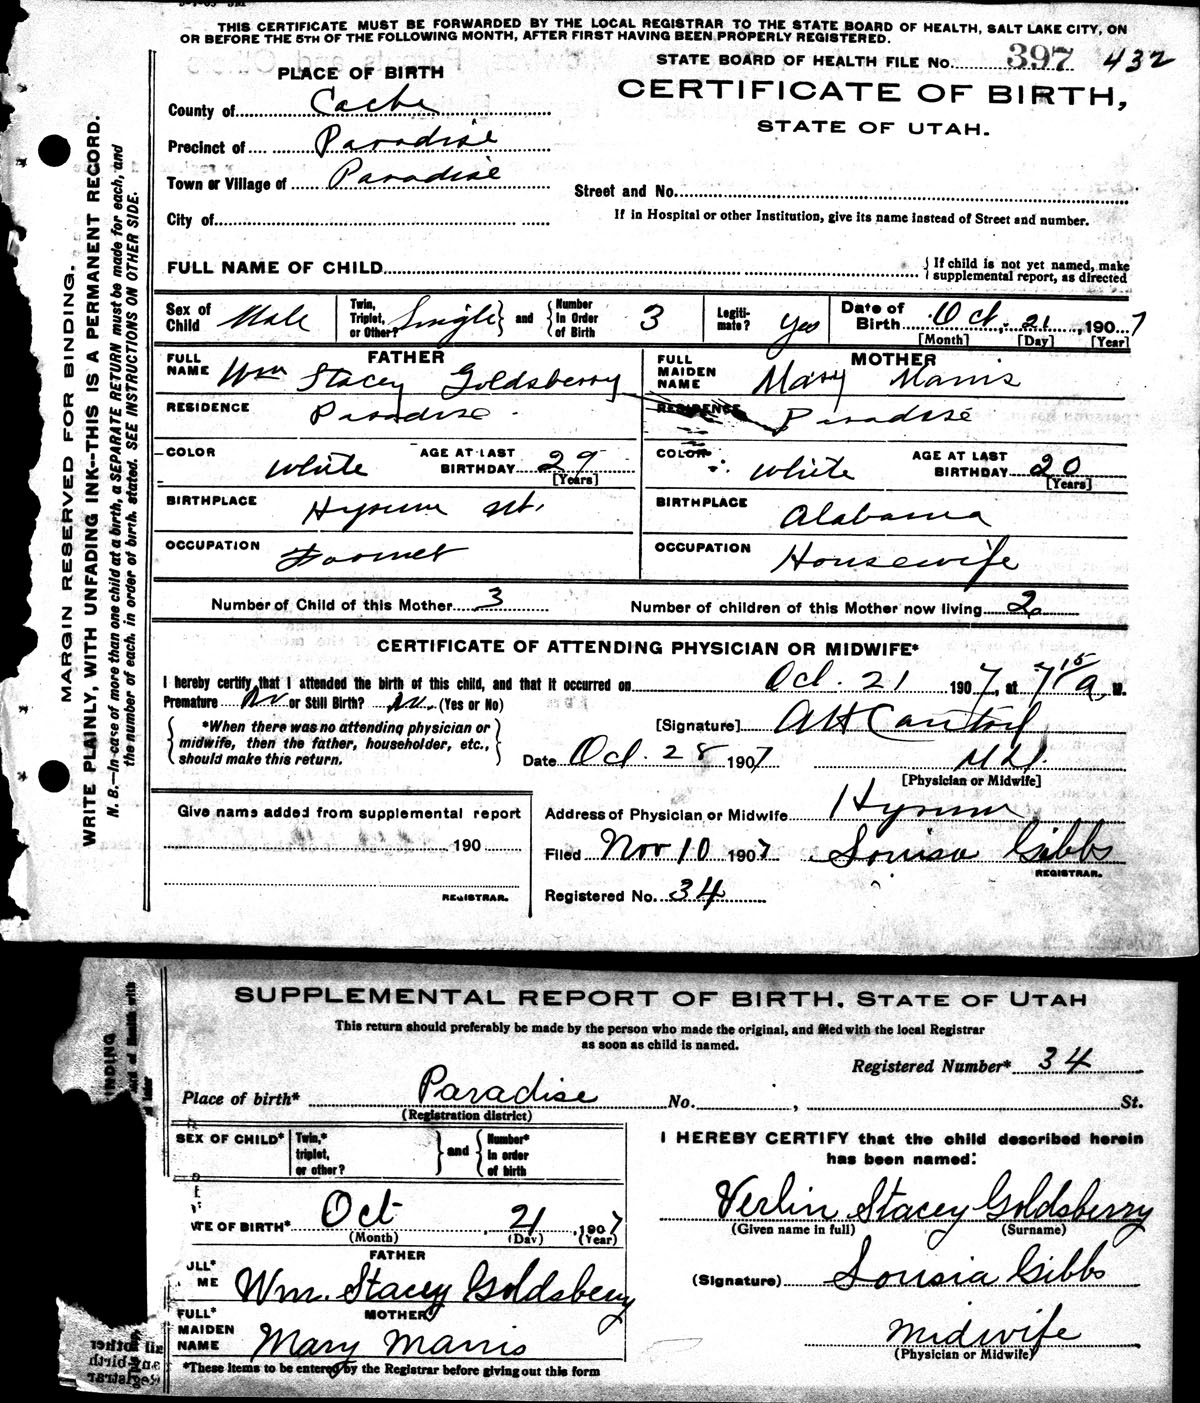 THIS CERTIFICATE MUST BE FORWARDED BY THE LOCAL REGISTRAR TO THE STATE BOARD OF HEALTH, SALT LAKE CITY, ON
OR BEFORE THE 5TH OF THE FOLLOWING MONTH, AFTER FIRST HAVING BEEN PROPERLY REGISTERED.
STATE BOARD OF HEALTH FILE No. 397 432
PLACE OF BIRTH
CERTIFICATE OF BIRTH,
STATE OF UTAH.
County of Cache
Precinct of Paradise
Town or Village of Paradise
Street and No.
City of
If in Hospital or other Institution, give its name instead of Street and number.
FULL NAME OF CHILD
If child is not yet named, make
supplemental report, as directed
Sex of Child Male
Twin, Triplet, or Other? Single and Number in Order of Birth 3
Legiti-mate? Yes
Date of Birth Oct. 21, 1907
[Month] [Day] [Year]
FATHER
FULL NAME Wm Stacey Goldsberry
MOTHER
FULL MAIDEN NAME Mary
RESIDENCE Paradise
RESIDENCE Paradise
COLOR White AGE AT LAST BIRTHDAY 29 [Years]
COLOR White AGE AT LAST BIRTHDAY 20 [Years]
BIRTHPLACE Hyrum Ut.
BIRTHPLACE Alabama
OCCUPATION Farmer
OCCUPATION Housewife
Number of Child of this Mother 3
Number of children of this Mother now living 2
CERTIFICATE OF ATTENDING PHYSICIAN OR MIDWIFE*
I hereby certify that I attended the birth of this child, and that it occurred on Oct. 21 1907, at 7 15 a, M.
Premature No or Still Birth? No (Yes or No)
*When there was no attending physician or
midwife, then the father, householder, etc.,
should make this return.
[Signature] A H
Date Oct. 28 1907 M.D.
[Physician or Midwife]
Give name added from supplemental report
190
REGISTRAR.
Address of Physician or Midwife Hyrum
Filed Nov 10 1907 Louisa Gibbs
REGISTRAR.
Registered No. 34
MARGIN RESERVED FOR BINDING.
WRITE PLAINLY, WITH UNFADING INK--THIS IS A PERMANENT RECORD.
N. B.—In case of more than one child at a birth, a SEPARATE RETURN must be made for each, and
the number of each, in order of birth, stated. SEE INSTRUCTIONS ON OTHER SIDE.
SUPPLEMENTAL REPORT OF BIRTH, STATE OF UTAH
This return should preferably be made by the person who made the original, and filed with the local Registrar
as soon as child is named.
Registered Number* 34
Place of birth* Paradise No. , St.
(Registration district)
SEX OF CHILD* Twin,* triplet, or other? and Number* in order of birth
I HEREBY CERTIFY that the child described herein
has been named:
TE OF BIRTH* Oct , 21 , 1907
(Month) (Day) (Year)
Verlin Stacey Goldsberry
(Given name in full) (Surname)
FATHER
ULL* ME Wm. Stacey Goldsberry
(Signature) Lousia Gibbs
MOTHER
FULL* MAIDEN NAME Mary
Midwife
(Physician or Midwife)
*These items to be entered by the Registrar before giving out this form